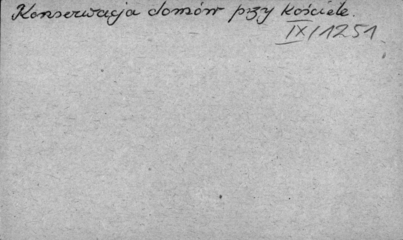 Konserwacja domów przy kościele.
IX/1251